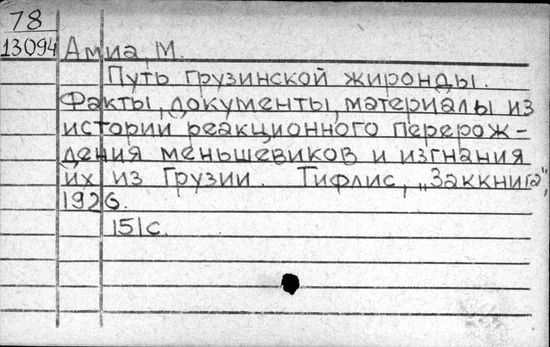 78
13094 Амиа, М.
Путь грузинской жиронды.
Факты, документы, материалы из
истории реакционного перерож-
дения меньшевиков и изгнания
их из Грузии. Тифлис, „Заккнига",
1926.
151с.